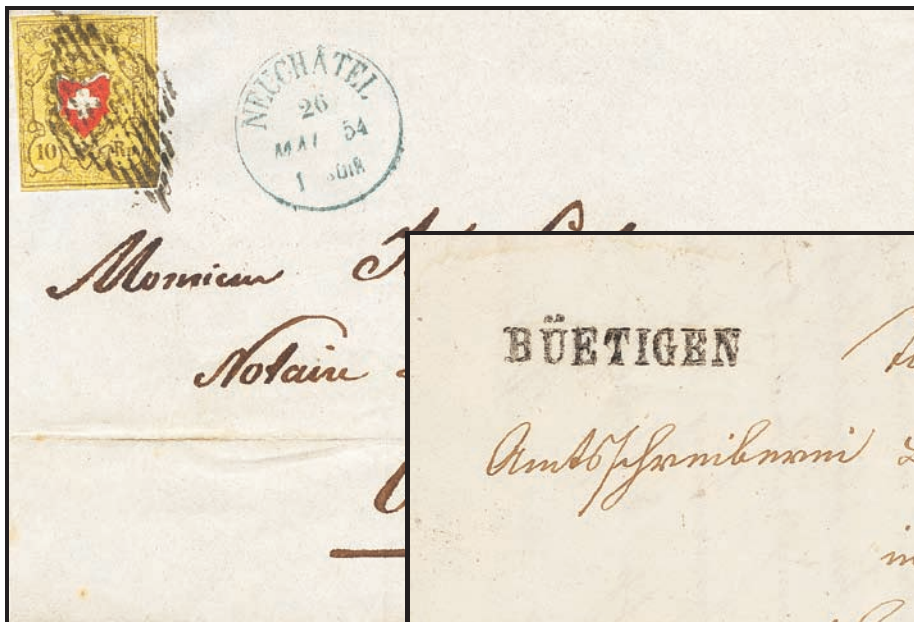 10 Rp.
NEUCHÂTEL
26
MAI 54
1 SOIR
Monsieur
Notaire
BÜETIGEN
Amtsschreiberei
in